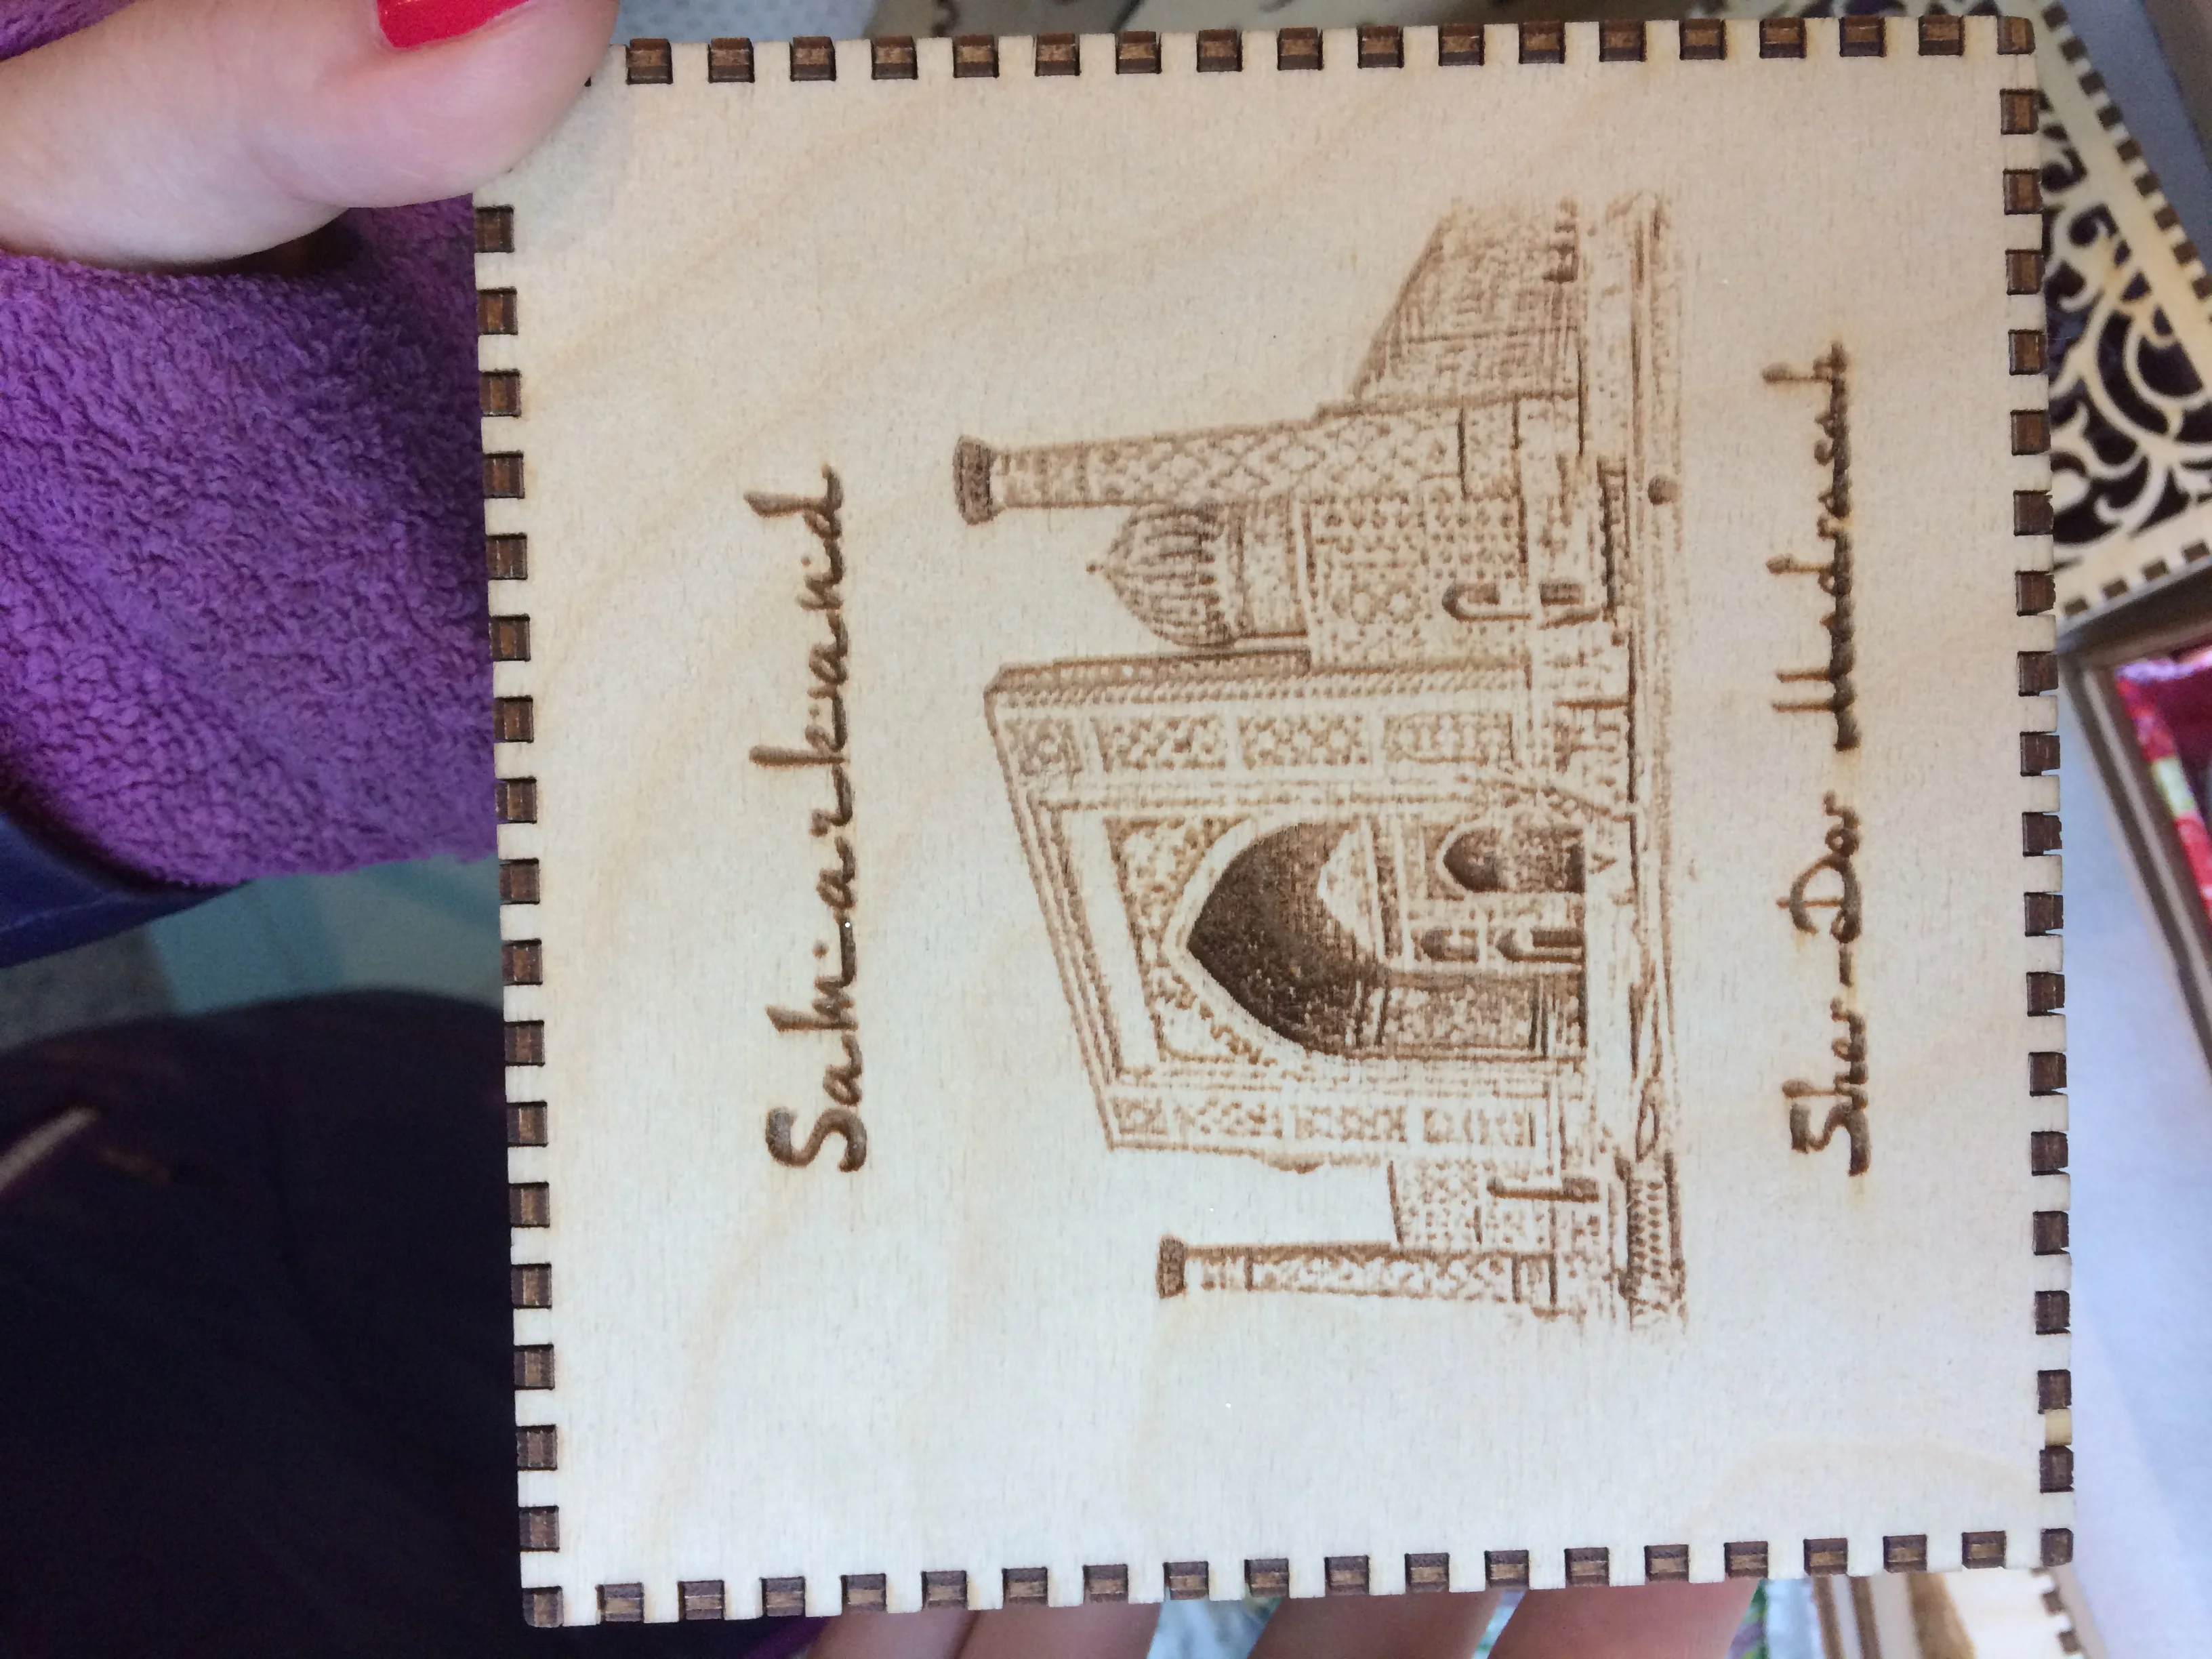 Samarkand
Sher-Dor Madrasah